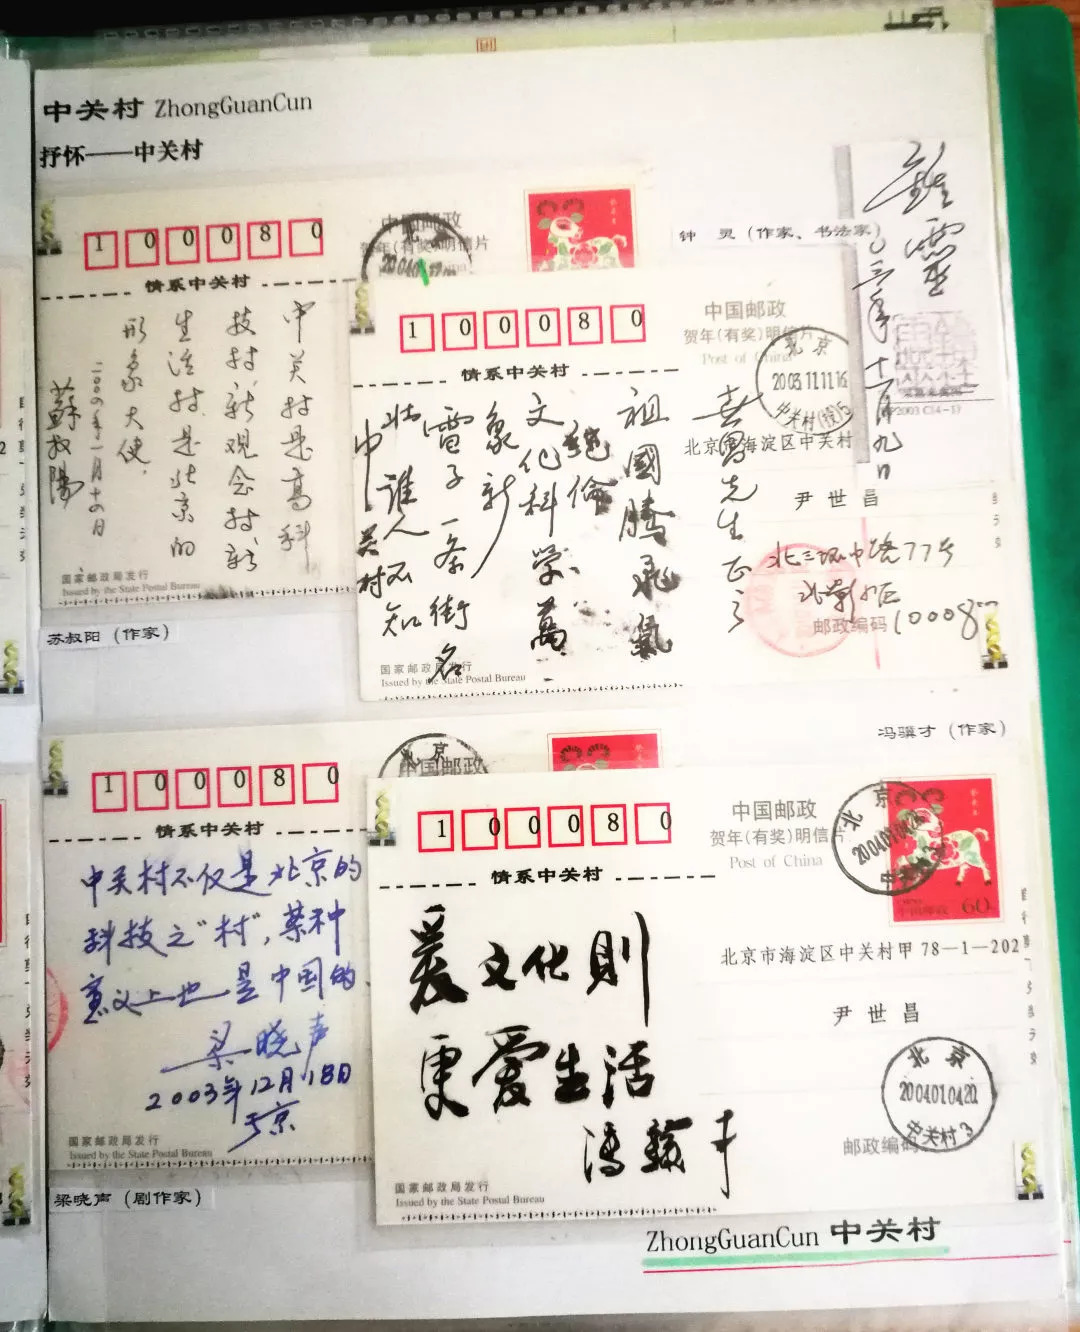 中关村 ZhongGuanCun
抒怀——中关村
100080
中国邮政
贺年(有奖)明信片
情系中关村
中关村是高科
技村新观念村新
生活村是北京的
形象大使.
二〇〇四年一月十四日
蘇叔陽
国家邮政局发行
Issued by the State Postal Bureau
苏叔阳（作家）
钟 灵（作家、书法家）
鍾靈
〇三年十一月九日
2003 (14-1)
100080
中国邮政
贺年(有奖)明信片
Post of China
情系中关村
北京
2003.11.11.16
中关村(投)5
北京市海淀区中关村
尹世昌
北三环中路77号
北影小区
邮政编码 100088
先生正之
祖國騰飛氣
象新
文化科學萬
電子一条街名
壮誰人不知
中关村
国家邮政局发行
Issued by the State Postal Bureau
冯骥才（作家）
100080
北京
中国邮政
情系中关村
中关村不仅是北京的
科技之“村”,某种
意义上也是中国的.
梁晓声
2003年12月18日
于京
国家邮政局发行
Issued by the State Postal Bureau
梁晓声（剧作家）
100080
中国邮政
贺年(有奖)明信片
Post of China
情系中关村
北京
中国邮政 60
北京市海淀区中关村甲 78—1—202
尹世昌
爱文化則
更爱生活
馮驥才
北京
2004.01.04.20
中关村 3
邮政编码
国家邮政局发行
Issued by the State Postal Bureau
ZhongGuanCun 中关村